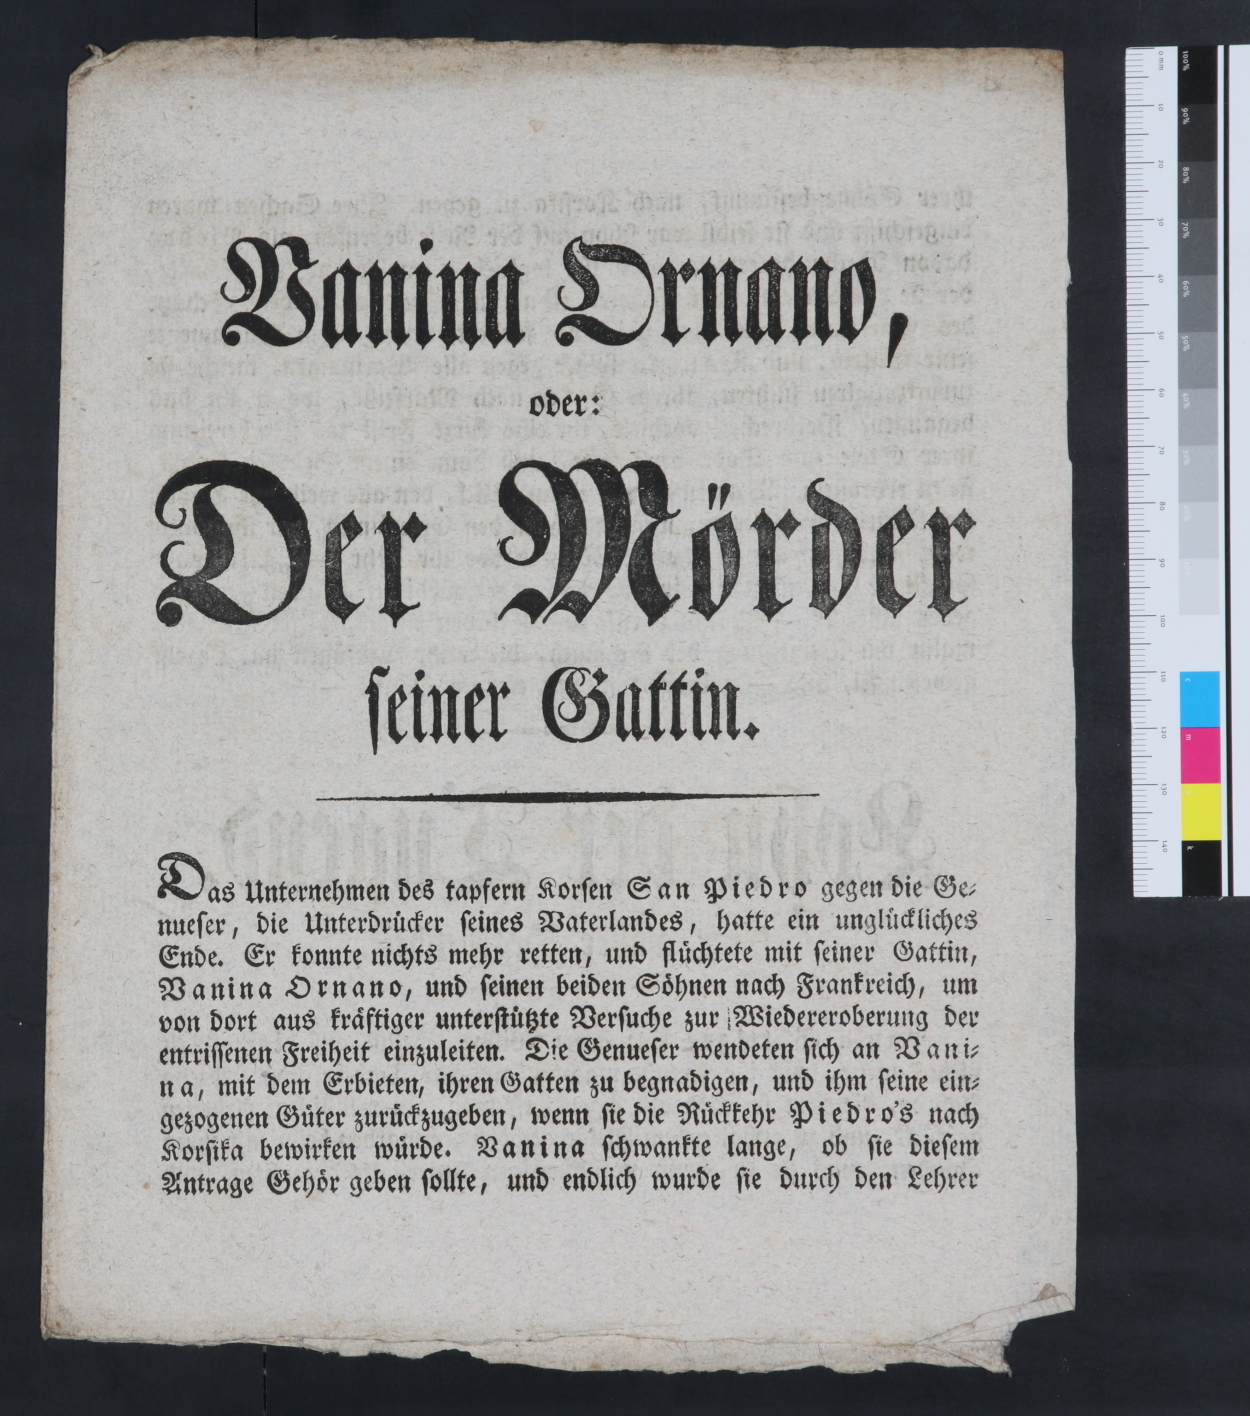 Vanina Ornano,
oder:
Der Mörder
seiner Gattin.
Das Unternehmen des tapfern Korsen San Piedro gegen die Ge-
nueser, die Unterdrücker seines Vaterlandes, hatte ein unglückliches
Ende. Er konnte nichts mehr retten, und flüchtete mit seiner Gattin,
Vanina Ornano, und seinen beiden Söhnen nach Frankreich, um
von dort aus kräftiger unterstützte Versuche zur Wiedereroberung der
entrissenen Freiheit einzuleiten. Die Genueser wendeten sich an Vani-
na, mit dem Erbieten, ihren Gatten zu begnadigen, und ihm seine ein-
gezogenen Güter zurückzugeben, wenn sie die Rückkehr Piedro's nach
Korsika bewirken würde. Vanina schwankte lange, ob sie diesem
Antrage Gehör geben sollte, und endlich wurde sie durch den Lehrer